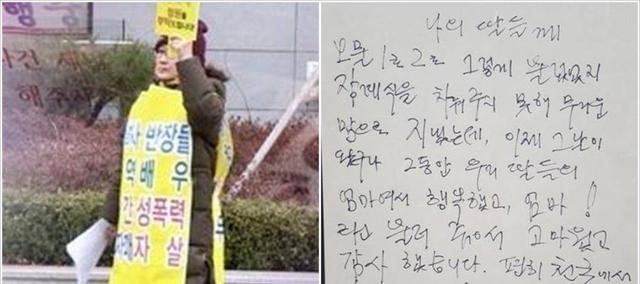 행
사건 재
해주세
사 반장들
역배우
간성폭력
매자살
나의 딸들께
오늘 1호 2호 그렇게
장례식을 치뤄주지 못해 무거운
맘으로 지냈는데, 이제 그날이
그동안 우리 딸들의
엄마여서 행복했고, 엄마!
라고 불러 주어서 고마웠고
감사 했습니다. 편히 천국에서